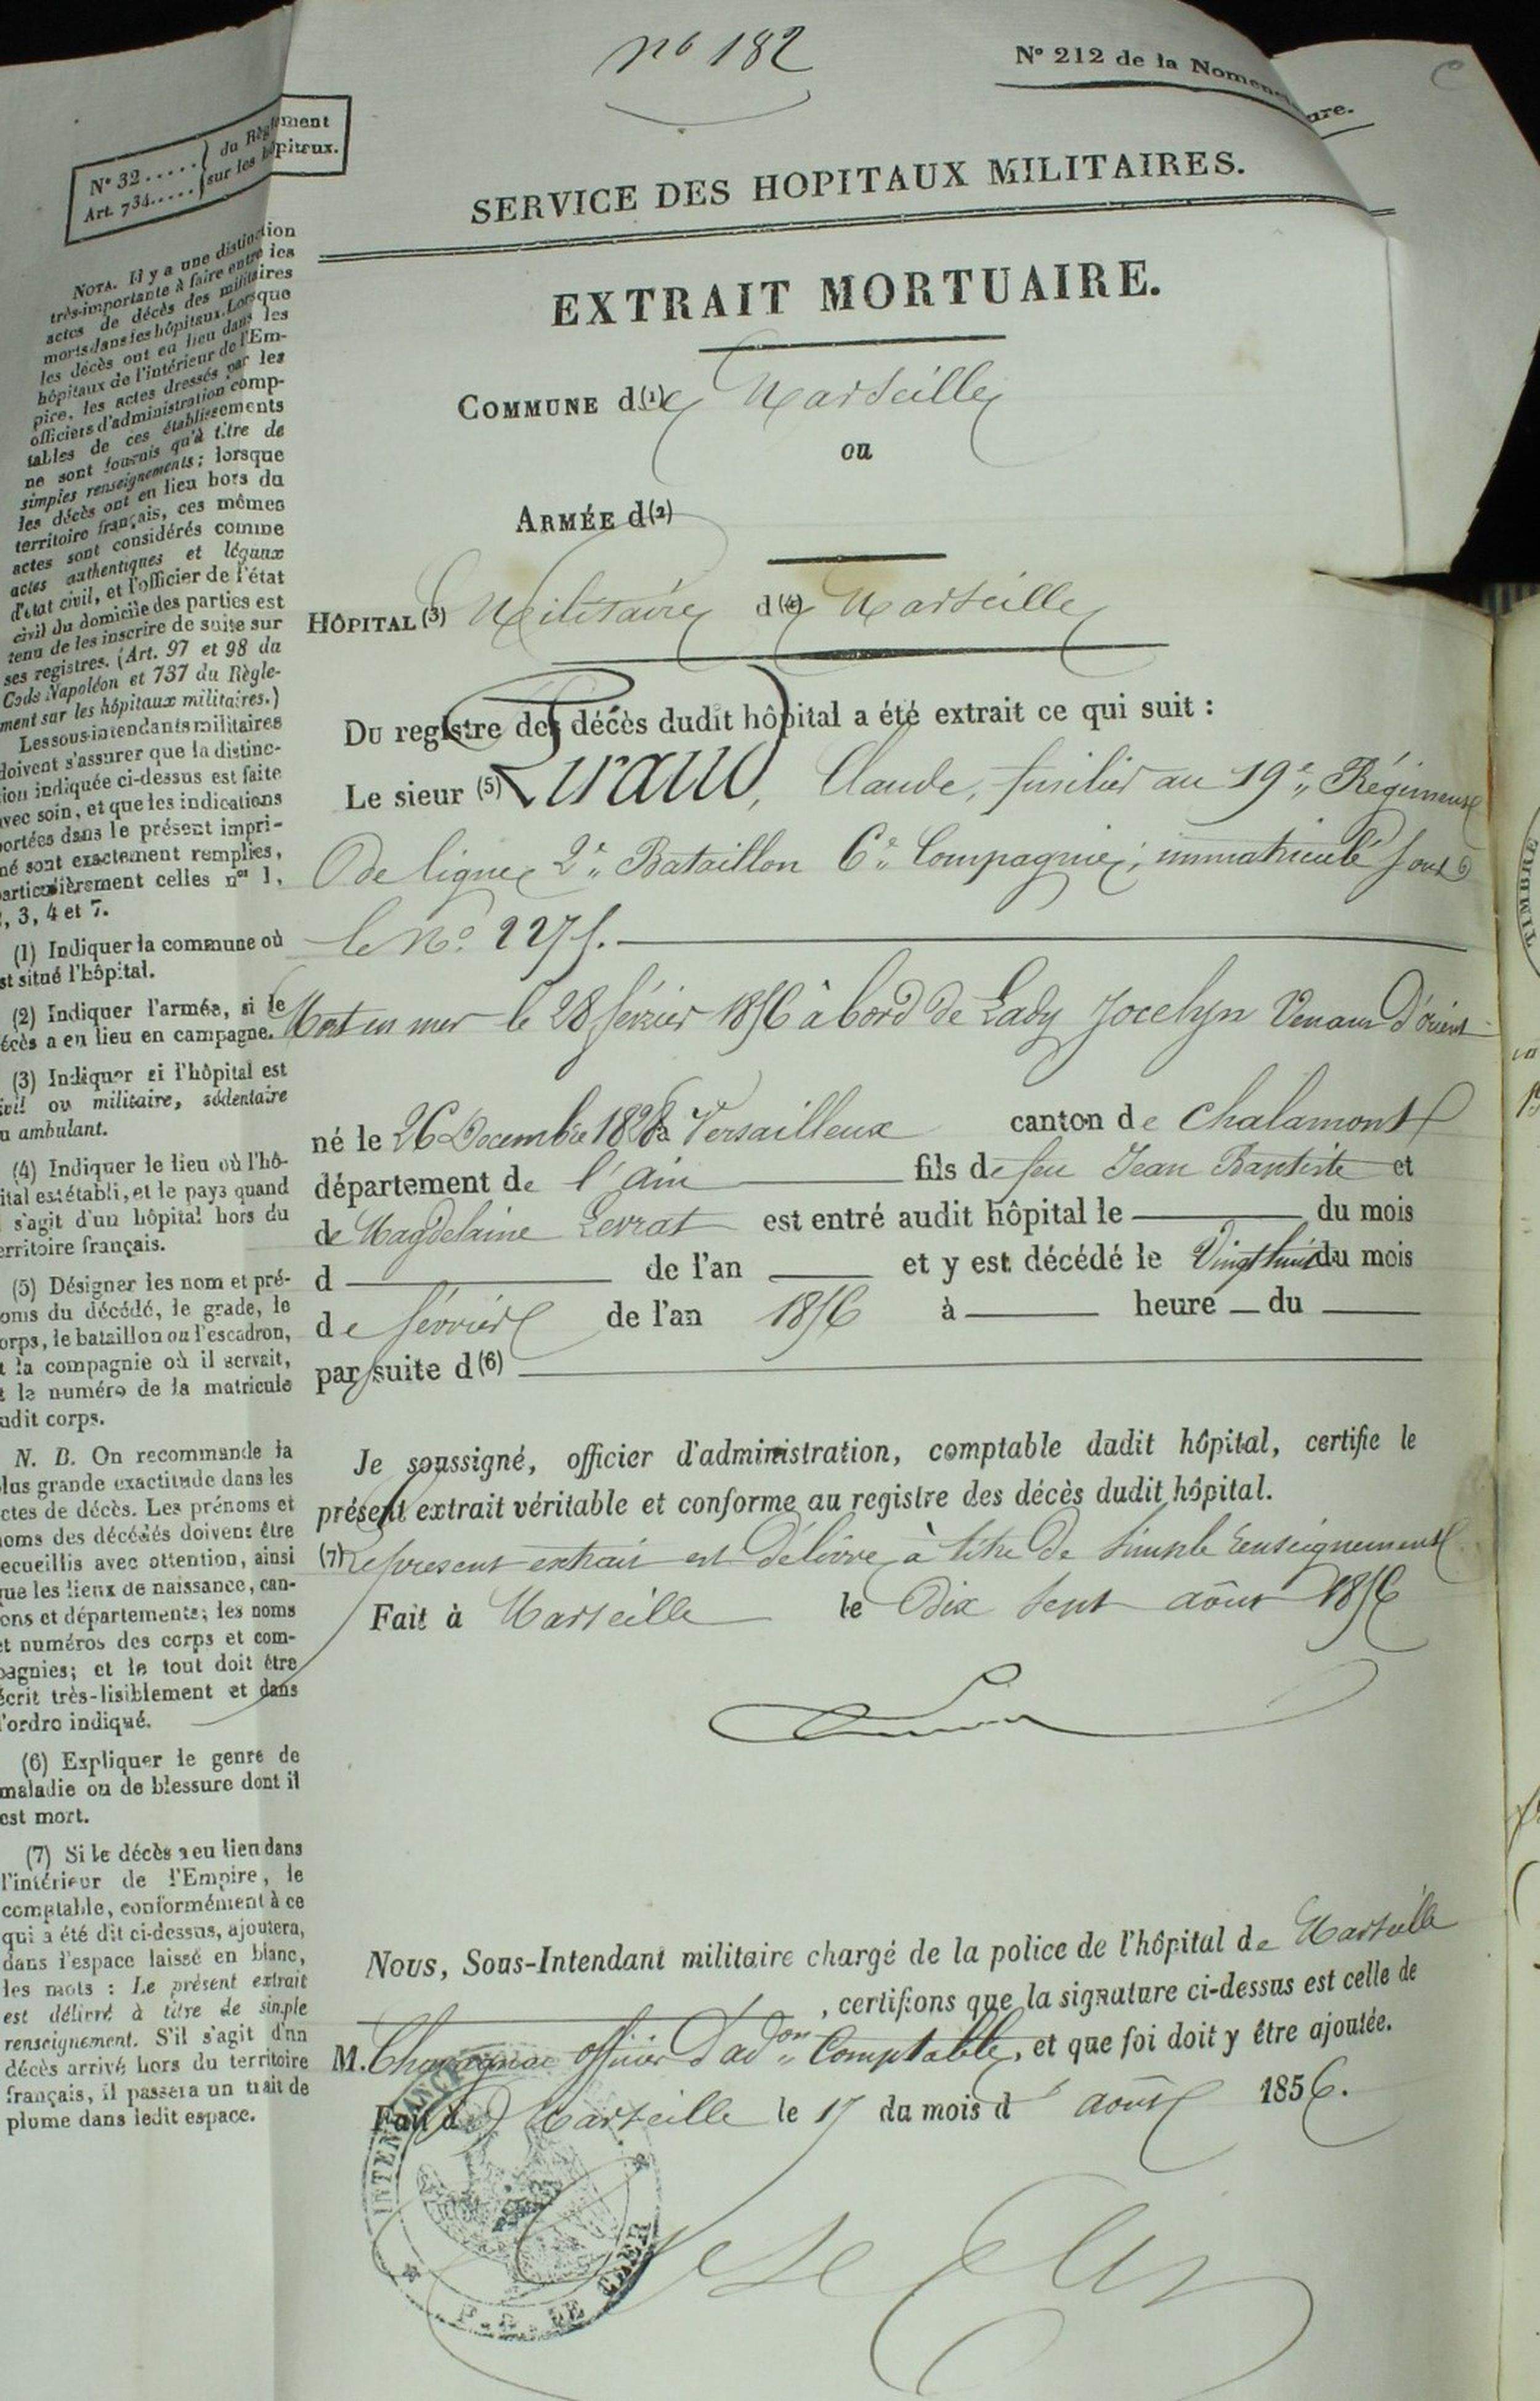 no 182
N° 212 de la Nomenclature.
N° 32..... } du Règlement
Art. 734.... } sur les hôpitaux.
SERVICE DES HOPITAUX MILITAIRES.
EXTRAIT MORTUAIRE.
COMMUNE d(1)e Marseille
ou
ARMÉE d(2)
HÔPITAL (3) Militaire d(4)e Marseille
Du registre des décès dudit hôpital a été extrait ce qui suit :
Le sieur (5) Giraud, Claude, fusilier au 19e Régiment
De ligne 2e Bataillon 6e Compagnie; immatriculé sous
le No. 2275.
Mort en mer le 28 février 1856 à bord de Lady Jocelyn Venant d'orient
né le 26 Decembre 1828 à Versailleux canton de Chalamont
département de l'ain fils de feu Jean Baptiste et
de Magdelaine Levrat est entré audit hôpital le du mois
d de l'an et y est décédé le Vingt huit du mois
de février de l'an 1856 à heure du
par suite d(6)
Je soussigné, officier d'administration, comptable dudit hôpital, certifie le
présent extrait véritable et conforme au registre des décès dudit hôpital.
(7) Le présent extrait est délivré à titre de simple renseignement
Fait à Marseille le Dix sept août 1856
Nous, Sous-Intendant militaire chargé de la police de l'hôpital de Marseille
, certifions que la signature ci-dessus est celle de
M. officier d'adon Comptable, et que foi doit y être ajoutée.
Fait à Marseille le 17 du mois d' août 1856.
INTENDANCE
NOTA. Il y a une distinction
très-importante à faire entre les
actes de décès des militaires
morts dans les hôpitaux. Lorsque
les décès ont eu lieu dans les
hôpitaux de l'intérieur de l'Em-
pire, les actes dressés par les
officiers d'administration comp-
tables de ces établissements
ne sont fournis qu'à titre de
simples renseignements; lorsque
les décès ont eu lieu hors du
territoire français, ces mêmes
actes sont considérés comme
actes authentiques et légaux
d'état civil, et l'officier de l'état
civil du domicile des parties est
tenu de les inscrire de suite sur
ses registres. (Art. 97 et 98 du
Code Napoléon et 737 du Règle-
ment sur les hôpitaux militaires.)
Les sous-intendants militaires
doivent s'assurer que la distinc-
tion indiquée ci-dessus est faite
avec soin, et que les indications
portées dans le présent impri-
mé sont exactement remplies,
particulièrement celles nos 1,
2, 3, 4 et 7.
(1) Indiquer la commune où
est situé l'hôpital.
(2) Indiquer l'armée, si le
décès a eu lieu en campagne.
(3) Indiquer si l'hôpital est
civil ou militaire, sédentaire
ou ambulant.
(4) Indiquer le lieu où l'hô-
pital est établi, et le pays quand
il s'agit d'un hôpital hors du
territoire français.
(5) Désigner les nom et pré-
noms du décédé, le grade, le
corps, le bataillon ou l'escadron,
et la compagnie où il servait,
et le numéro de la matricule
dudit corps.
N. B. On recommande la
plus grande exactitude dans les
actes de décès. Les prénoms et
noms des décédés doivent être
recueillis avec attention, ainsi
que les lieux de naissance, can-
tons et départements; les noms
et numéros des corps et com-
pagnies; et le tout doit être
écrit très-lisiblement et dans
l'ordre indiqué.
(6) Expliquer le genre de
maladie ou de blessure dont il
est mort.
(7) Si le décès a eu lieu dans
l'intérieur de l'Empire, le
comptable, conformément à ce
qui a été dit ci-dessus, ajoutera,
dans l'espace laissé en blanc,
les mots : Le présent extrait
est délivré à titre de simple
renseignement. S'il s'agit d'un
décès arrivé hors du territoire
français, il passera un trait de
plume dans ledit espace.
TIMBRE